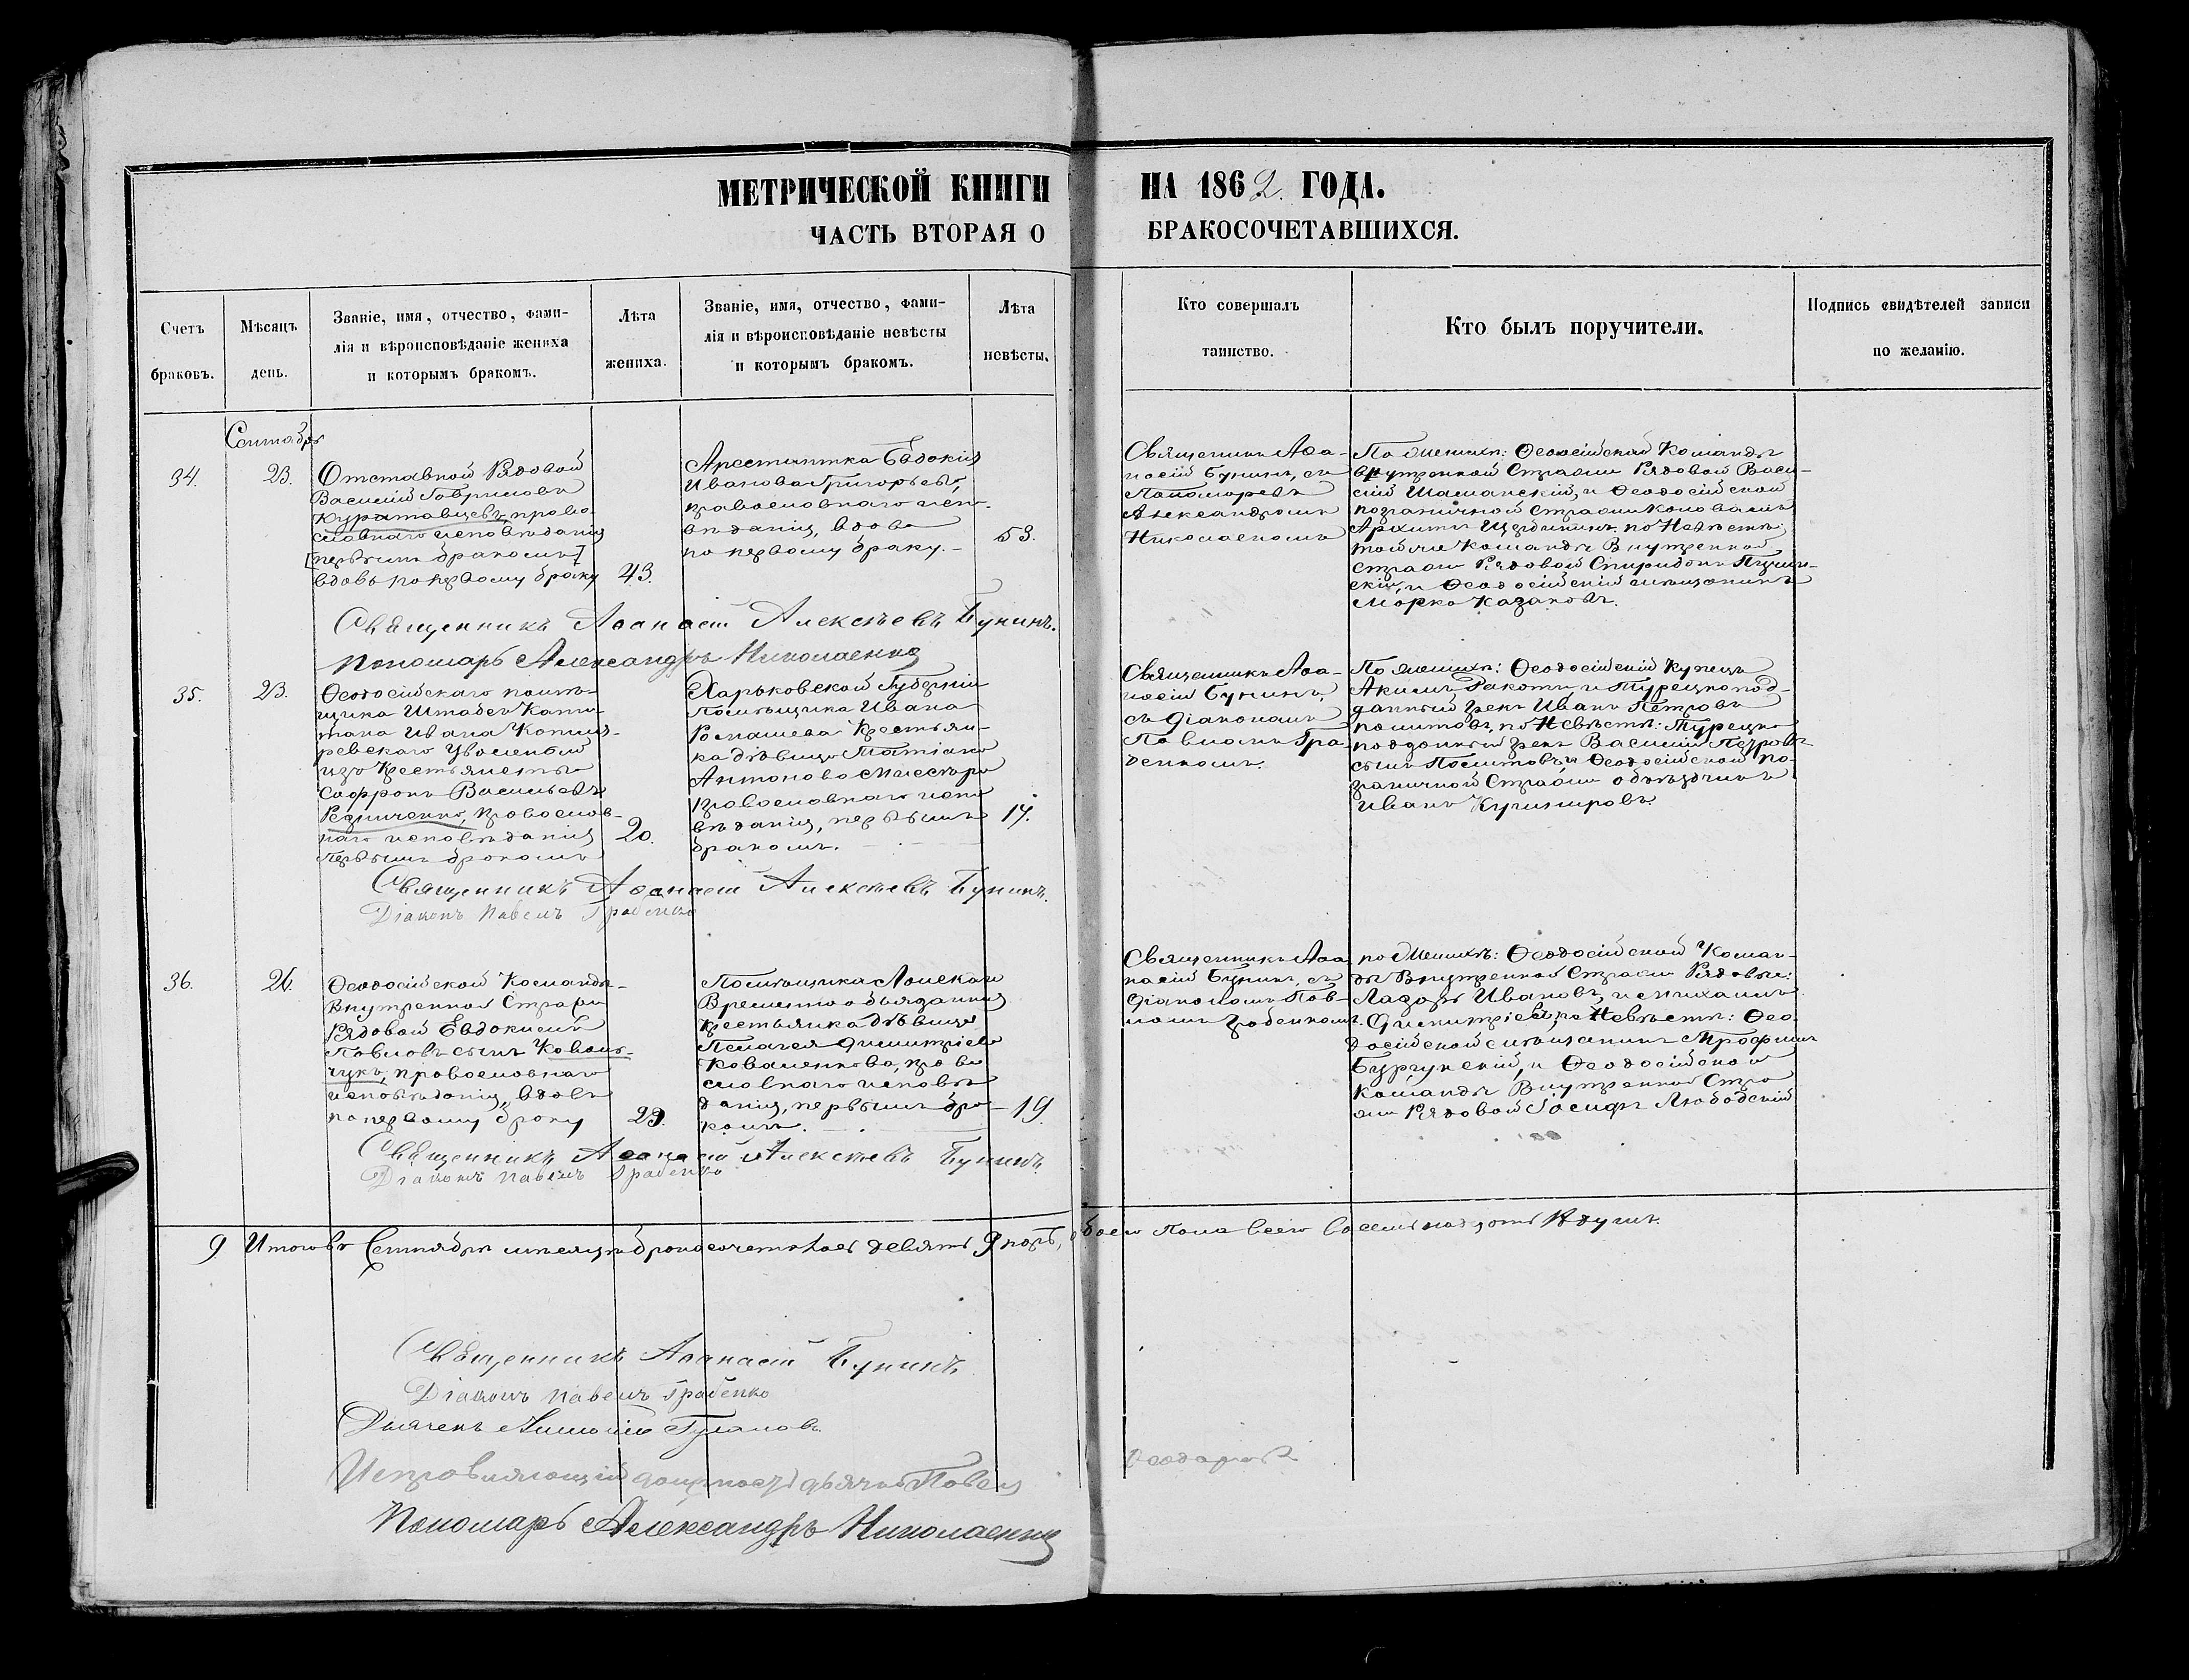 МЕТРИЧЕСКОЙ КНИГИ НА 1862. ГОДА.
ЧАСТЬ ВТОРАЯ О БРАКОСОЧЕТАВШИХСЯ.
Счетъ
браковъ.
Мѣсяцъ
день.
Званіе, имя, отчество, фами-
лія и вѣроисповѣданіе жениха
и которымъ бракомъ.
Лѣта
жениха.
Званіе, имя, отчество, фами-
лія и вѣроисповѣданіе невѣсты
и которымъ бракомъ.
Лѣта
невѣсты.
Кто совершалъ
таинство.
Кто былъ поручители.
Подпись свидѣтелей записи
по желанію.
Сентябрь
34.
23.
Отставной Рядовой
Василій Гавриловъ
Куратовцевъ, право-
славнаго исповѣданія
[первымъ бракомъ]
вдовъ по первому браку
43.
Арестантка Евдокія
Иванова Григорьева,
православнаго испо-
вѣданія, вдова
по первому браку. –
53.
Священникъ Аѳа-
насій Бунинъ, съ
Пономаремъ
Александромъ
Николаенкомъ
По женихѣ: Ѳеодосійской Команды
внутренней Стражи Рядовой Васи-
лій Шаманскій, и Ѳеодосійской
пограничной Стражи
по Невѣстѣ
той же Команды Внутренней
Стражи Рядовой Спиридонъ
и Ѳеодосійскій мѣщанинъ
Марко Казаковъ.
Священникъ Аѳанасій Алексѣевъ Бунинъ.
Пономарь Александръ Николаенко
35.
23.
Ѳеодосійскаго помѣ-
щика Штабсъ Капи-
тана Ивана
уволенный
изъ Крестьянства
Софронъ Васильевъ
Резниченко, православ-
наго исповѣданія
первымъ бракомъ
20.
Харьковской Губерніи
Помѣщика Ивана
Ромашева Крестьян-
ка дѣвица Татіана
Антонова
православнаго испо-
вѣданія, первымъ
бракомъ.
17.
Священникъ Аѳа-
насій Бунинъ,
съ Діакономъ
Павломъ Гра-
бенкомъ.
По женихѣ: Ѳеодосійскій Купецъ
Акимъ и Турецкопод-
данный грекъ Иванъ Петровъ
по Невѣстѣ: Турецко
подданный грекъ Василій Петровъ
сынъ и Ѳеодосійской по-
граничной Стражи объѣздчикъ
Иванъ
Священникъ Аѳанасій Алексѣевъ Бунинъ.
Діаконъ Павелъ Грабенко
36.
26.
Ѳеодосійской Команды
Внутренней Стражи
Рядовой Евдокимъ
Павловъ сынъ Коваль-
чукъ, православнаго
исповѣданія, вдовъ
по первому браку
29.
Помѣщика Ломскаго
Временно обязанная
крестьянка дѣвица
Пелагея Димитріева
Коваленкова, право
славнаго исповѣ
данія, первымъ бра-
комъ.
19.
Священникъ Аѳа
насій Бунинъ, съ
Діакономъ Пав-
ломъ Грабенкомъ.
по женихѣ: Ѳеодосійской Коман-
ды Внутренней Стражи Рядовые:
Лазарь Ивановъ, и Михаилъ
Димитріевъ, по Невѣстѣ: Ѳео-
досійской мѣщанинъ Трофимъ
Бургунскій, и Ѳеодосійской
Команды Внутренней Стра
жи Рядовой Іосифъ Любодскій
Священникъ Аѳанасій Алексѣевъ Бунинъ.
Діаконъ Павелъ Грабенко
9 Итого въ Сентябрѣ мѣсяцѣ бракосочеталось девять 9 паръ, обоего пола всего восемнадцать 18 душъ.
Священникъ Аѳанасій Бунинъ
Діаконъ Павелъ Грабенко
Дьячекъ
Исправляющій должность дьячка Павелъ Ѳеодоровъ
Пономарь Александръ Николаенко